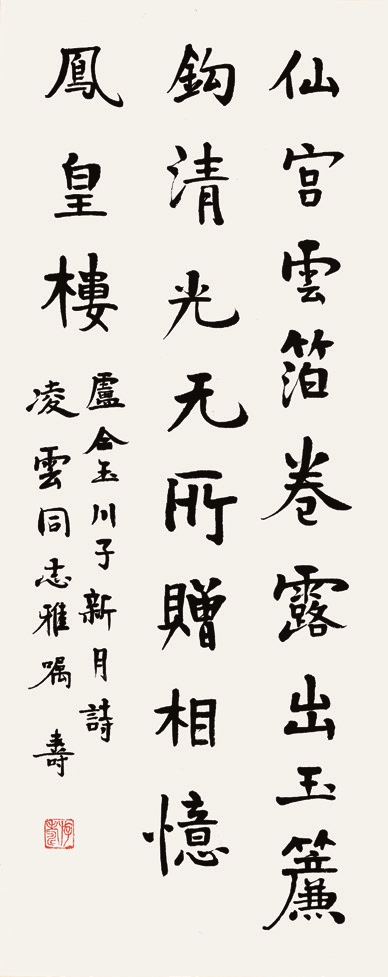 仙宫雲箔卷露出玉簾
鈎清光无所贈相憶
鳳皇樓
盧仝玉川子新月詩
凌雲同志雅嘱 壽